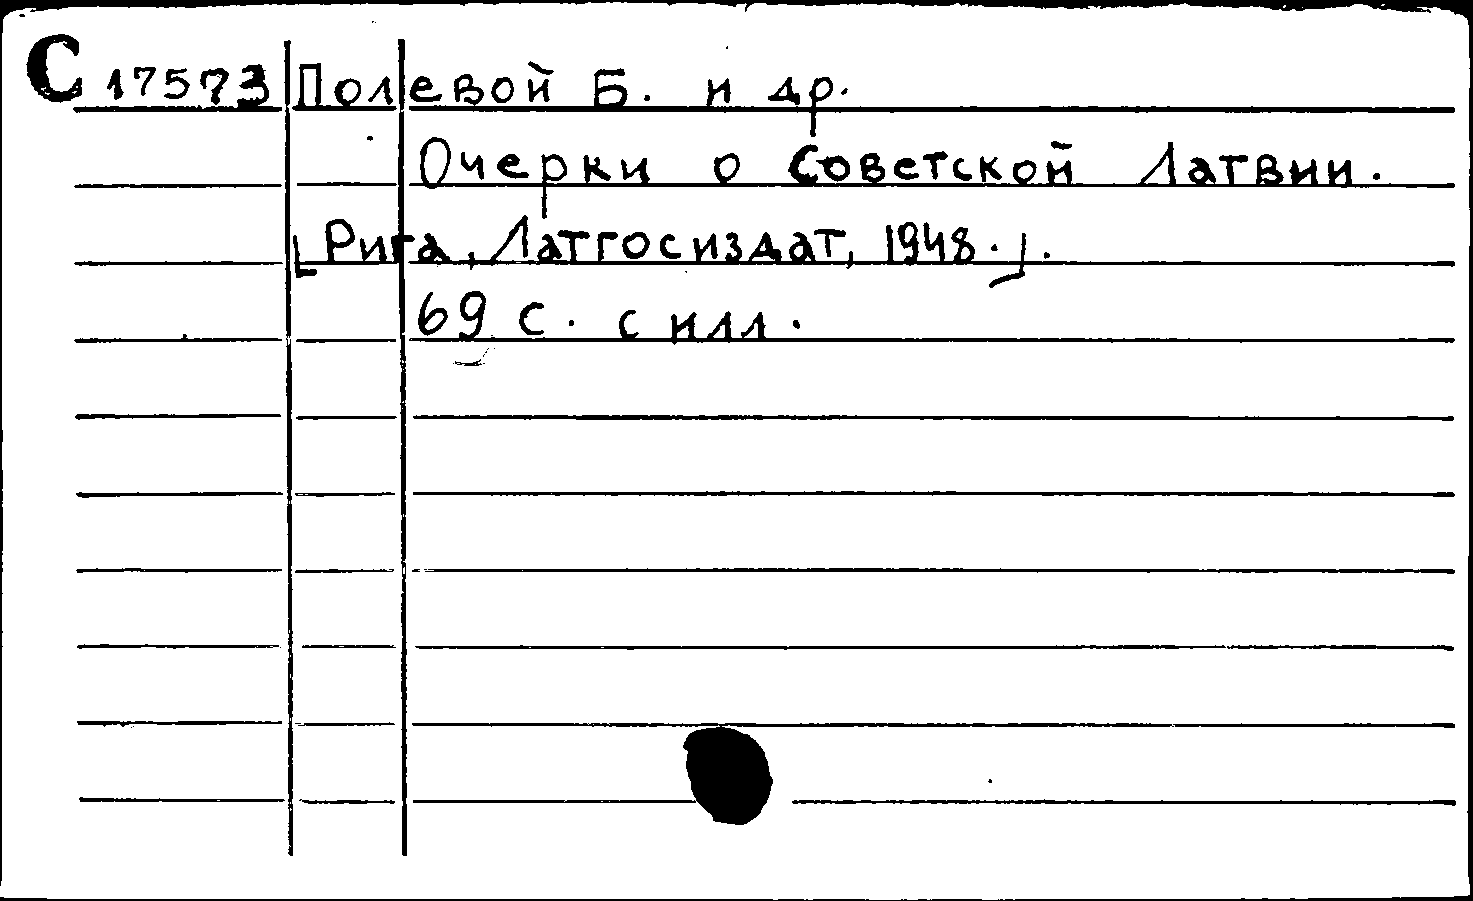 С 17573 Полевой Б. и др.
Очерки о Советской Латвии.
[Рига, Латгосиздат, 1948.].
69 с. с илл.